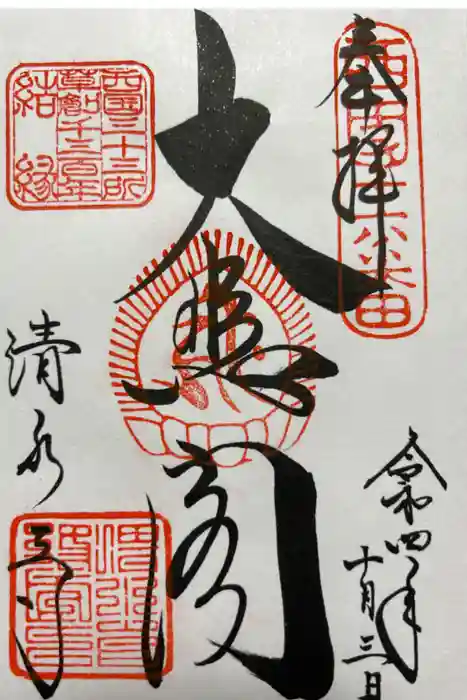 奉拝
西国十六番
大悲閣
清水寺
令和四年
十月三日
西国三十三所
草創千三百年
結縁